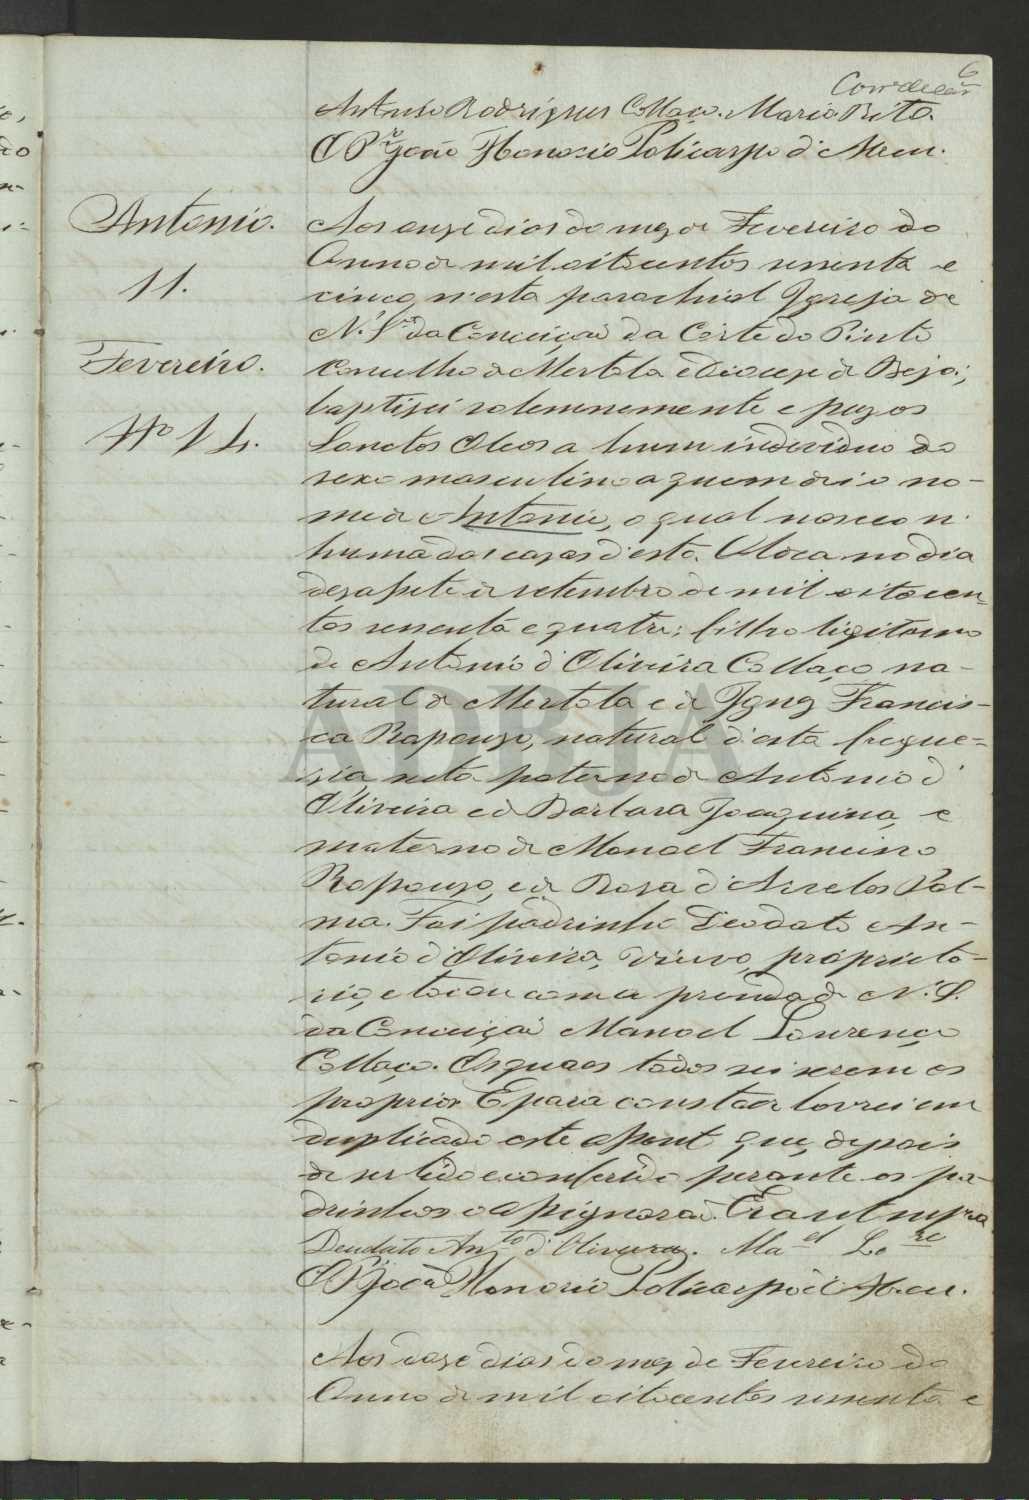 6
Antonio Rodrigues Collaço. Maria Rita.
O Pr. João Honorio Policarpo d'Abreu.
Antonio.
11.
Fevereiro.
Nº 14.
Aos onze dias do mez de Fevereiro do
Anno de mil oitocentos sessenta e
cinco n'esta parochial Igreja de
N. Srª da Conceição da Corte do Pinto
concelho de Mertola e Diocese de Beja;
baptizei solemnemente e puz os
Sanctos Oleos a hum individuo do
sexo masculino a quem dei o no-
me de Antonio, o qual nasceo n'
huma das cazas d'esta Aldea no dia
dezasete de setembro de mil oitocen-
tos sessenta e quatro; filho legitimo
de Antonio d'Oliveira Collaço na-
tural de Mertola e de Ignez Francis-
ca Rapouzo, natural d'esta fregue-
sia neto paterno de Antonio d'
Oliveira e de Barbara Joaquina, e
materno de Manoel Francisco
Rapouzo, e de Roza d'Palma
ma. Foi padrinho Deodato An-
tonio d'Oliveira, viuvo, proprieta-
rio, e tocou com a prenda de N. S.
da Conceição Manoel Lourenço
Collaço. Os quaes todos sei serem os
proprios E para constar lavrei em
duplicado este assento que, depois
de ser lido e conferido perante os pa-
drinhos o assignarão. Era ut supra
Deudato Anto d'Oliveira. Mael Lore
O Pr João Honorio Policarpo d'Abreu.
Aos doze dias do mez de Fevereiro do
Anno de mil oitocentos sessenta e
ADBJA